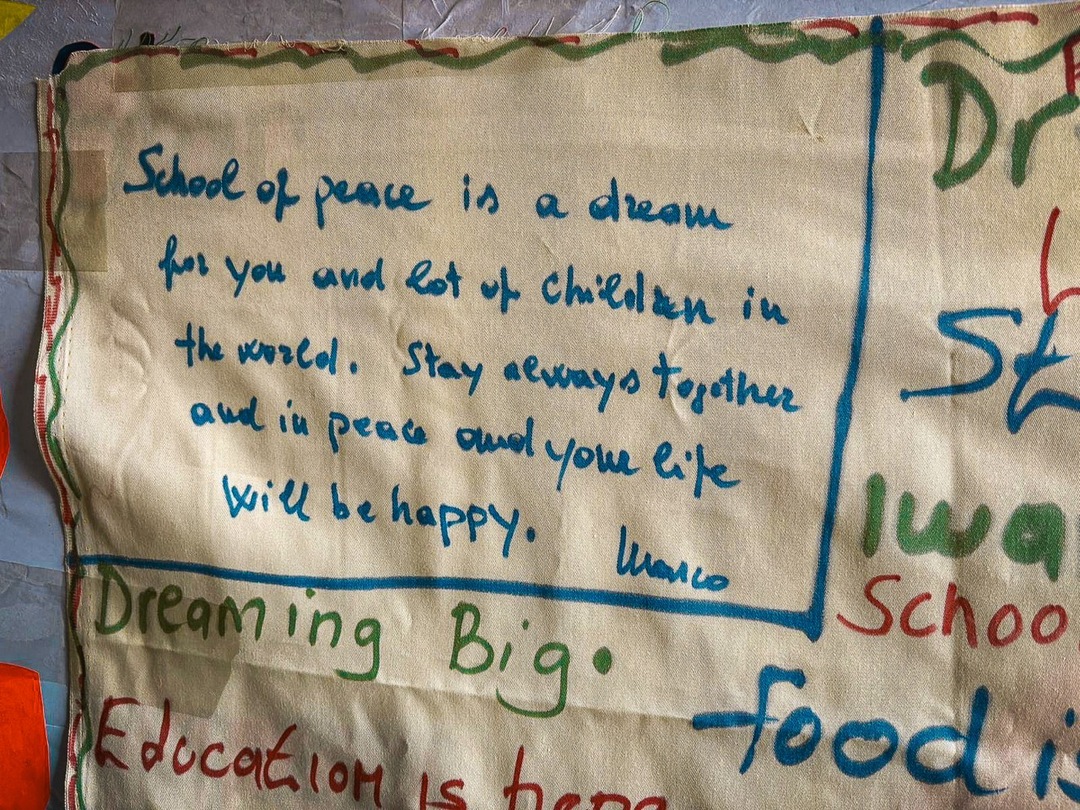 School of peace is a dream
for you and lot of children in
the world. Stay always together
and in peace and your life
will be happy.
Marco
Dreaming Big.
Education is
Dr
St
Iwa
Schoo
food is